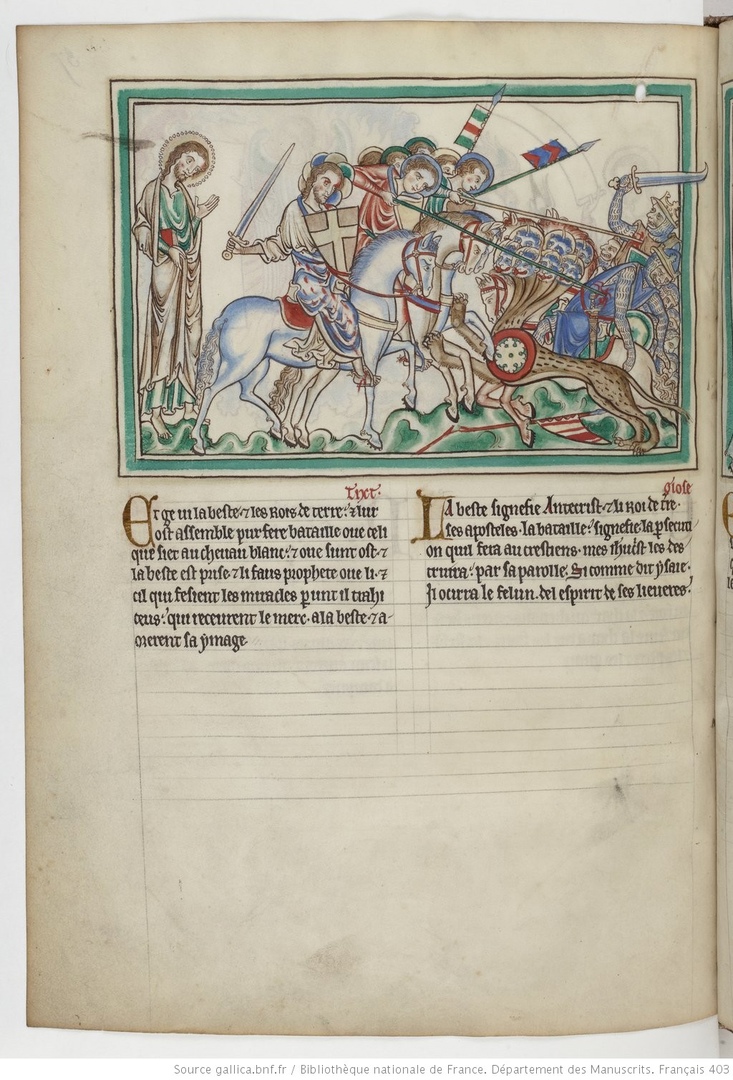 Text.
Et ge ui la beste. ⁊ les Rois de terre. ⁊ lur
ost assemble pur fere bataille oue celi
que siet au cheuau blanc. ⁊ oue sunt ost. ⁊
la beste est prise ⁊ li faus prophete oue li. ⁊
cil qui fesient les miracles p unt il trahi
ceus. qui receurent le merc. a la beste. ⁊ a
orerent sa ymage
Glose
La beste signefie Antecrist. ⁊ li Roi de tre.
ses aposteles. la bataille. signefie. la p seuti
on quil fera au crestiens. mes ihu crist les des
truira. par sa parolle. Si comme dit ysaie.
Il ocirra le felun. del espirit de ses lieueres.
Source gallica.bnf.fr / Bibliothèque nationale de France. Département des Manuscrits. Français 403